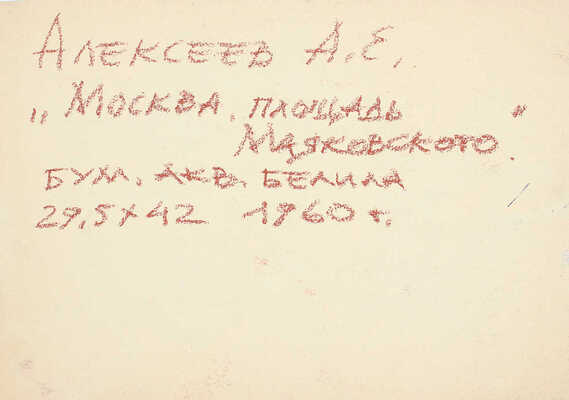 Алексеев А.Е.
„Москва. площадь "
Маяковского.
бум. акв. белила
29,5х42 1960 г.